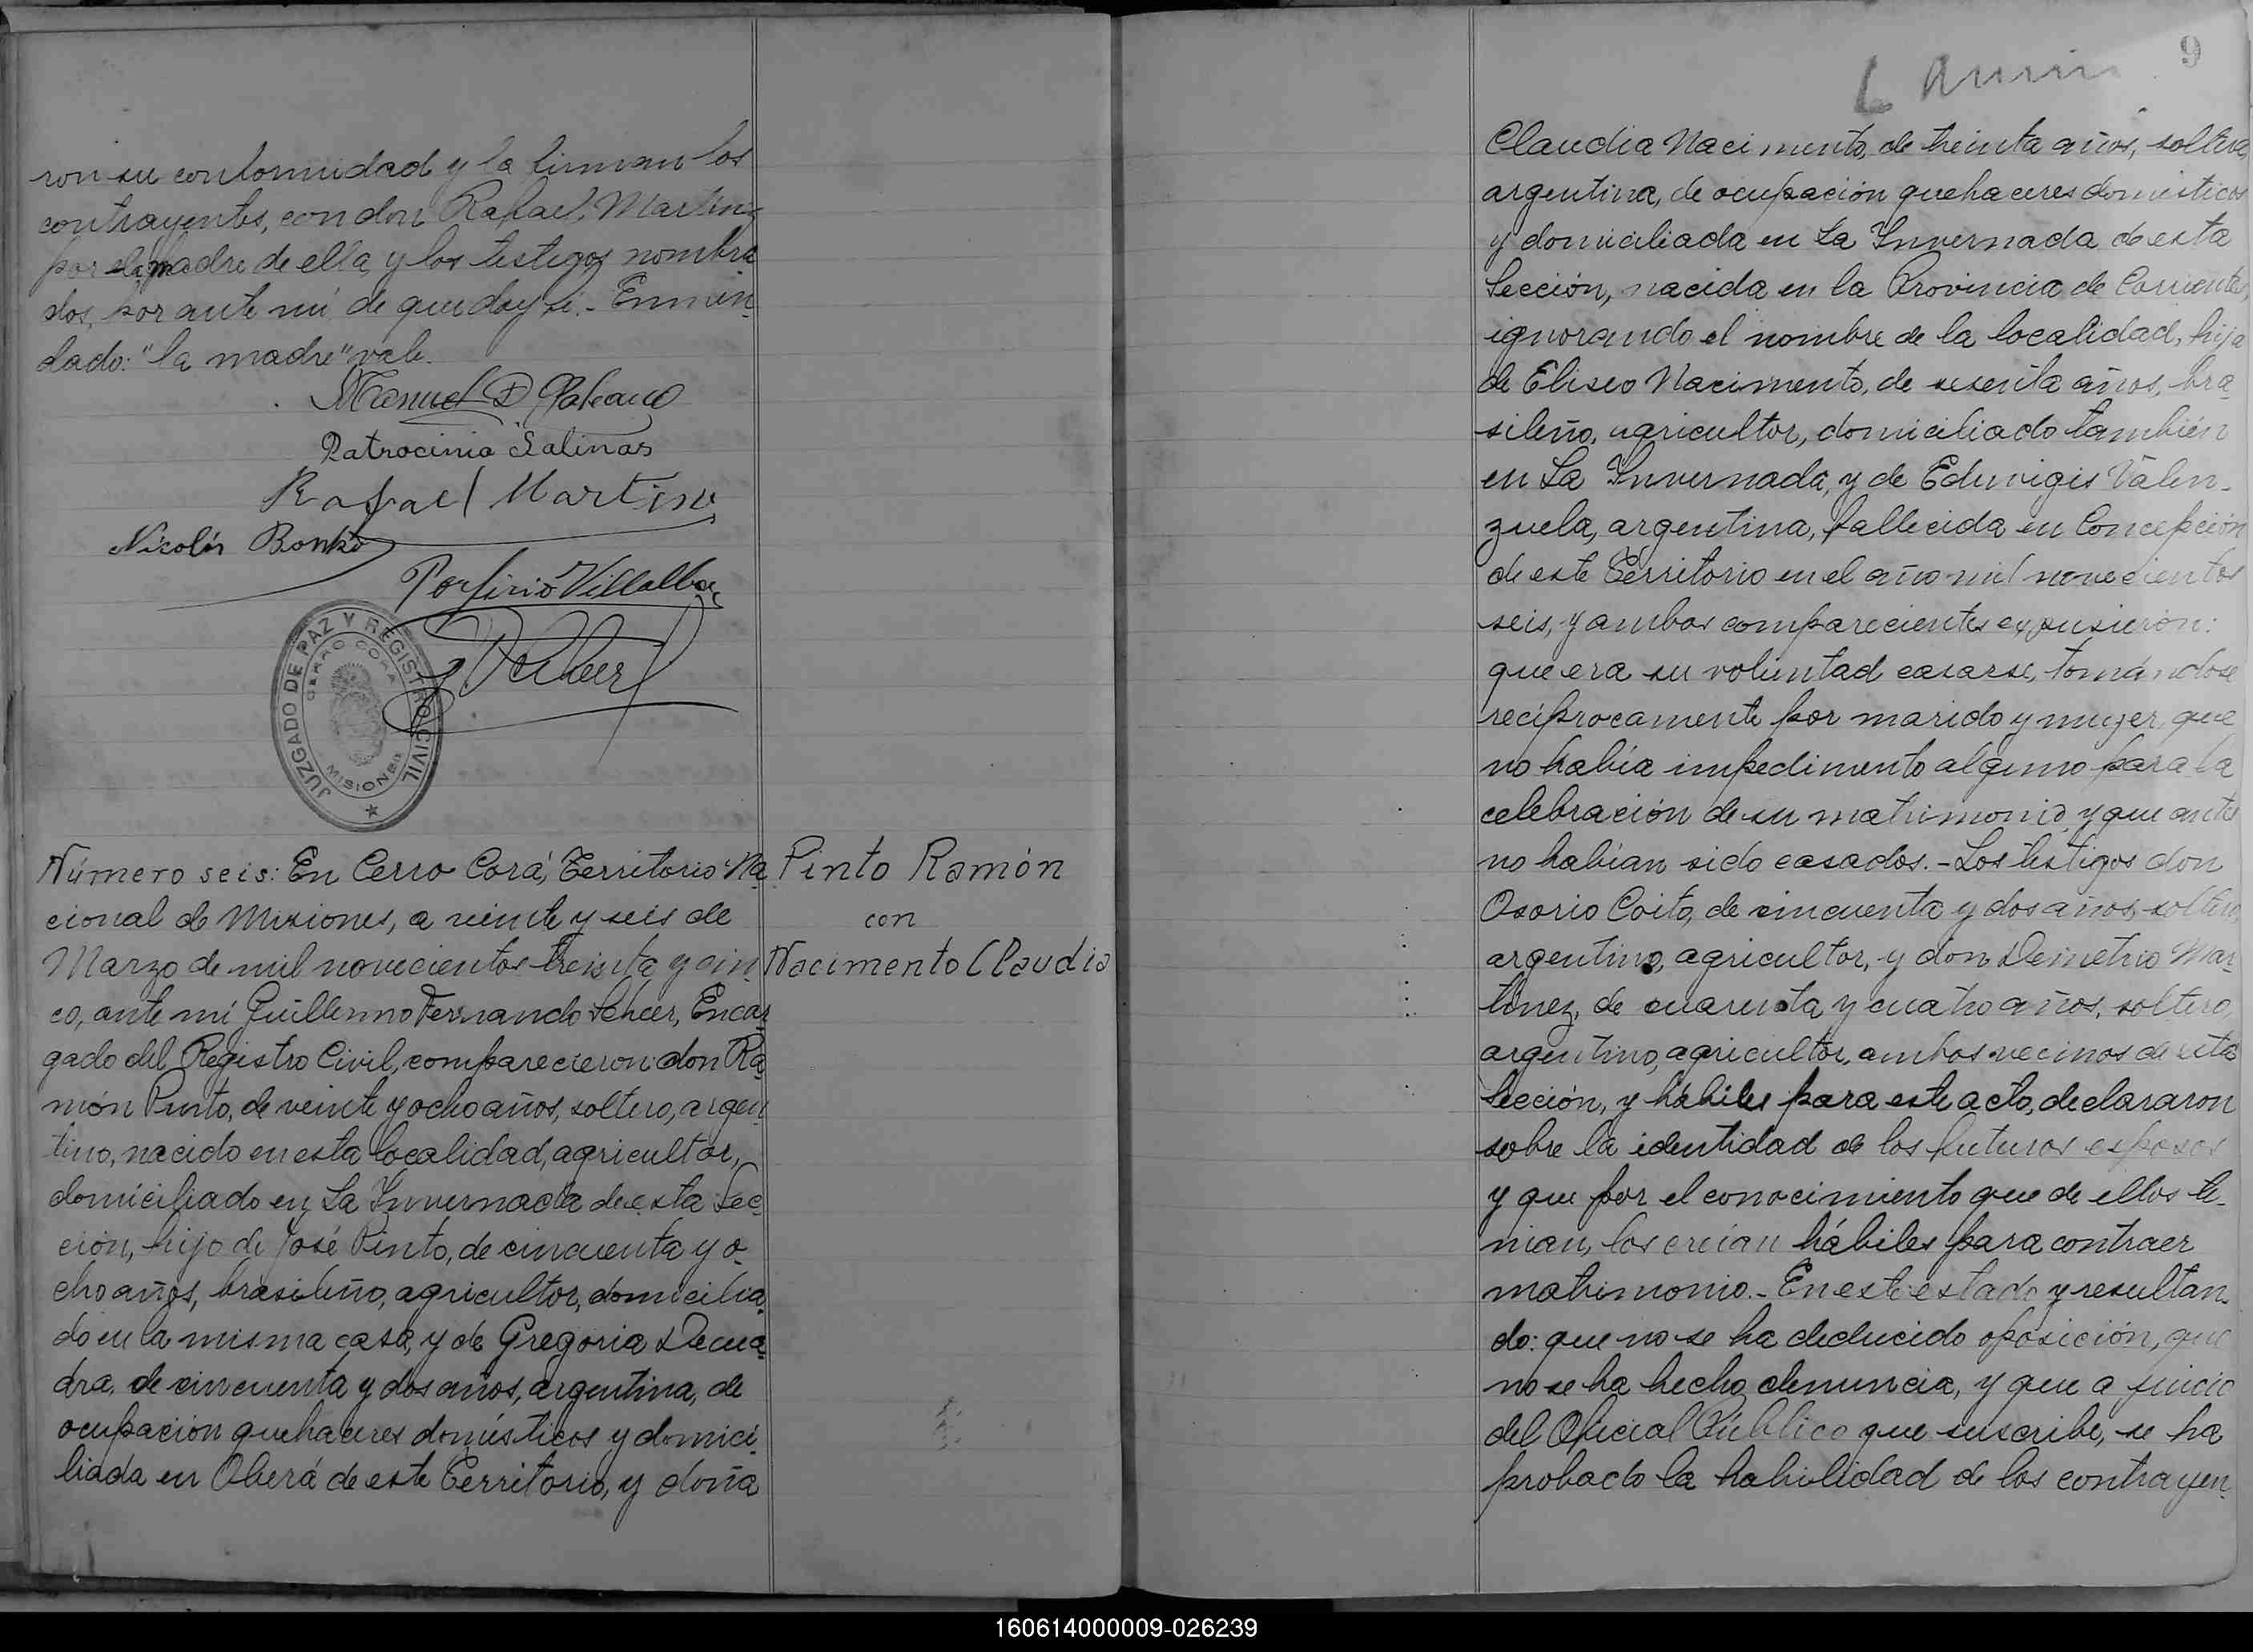 ron su conformidad y la firman los
contrayentes, con don Rafael Martinez
por la madre de ella y los testigos nombra
dos, por ante mí de que doy fé.- Enmen
dado: "la madre" vale.
Manuel D
Patrocinia Salinas
Rafael Martinez
Nicolás
Porfirio Villalba
JUZGADO DE PAZ Y REGISTRO CIVIL
CERRO CORÁ
MISIONES
Número seis: En Cerro Corá, Territorio Na
cional de Misiones, a veinte y seis de
Marzo de mil novecientos treinta y cin
co, ante mí Guillermo Fernando Scheer, Encar
gado del Registro Civil, comparecieron: don Ra
món Pinto, de veinte y ocho años, soltero, argen
tino, nacido en esta localidad, agricultor,
domiciliado en La Invernada de esta Sec
ción, hijo de José Pinto, de cincuenta y o
cho años, brasileño, agricultor, domicilia
do en la misma casa, y de Gregoria Decua
dra, de cincuenta y dos años, argentina, de
ocupación quehaceres domésticos y domici
liada en Oberá de este Territorio, y doña
Pinto Ramón
con
Nacimento Claudia
9
Claudia Nacimento, de treinta años, soltera,
argentina, de ocupación quehaceres domésticos
y domiciliada en La Invernada de esta
Sección, nacida en la Provincia de Corrientes,
ignorando el nombre de la localidad, hija
de Eliseo Nacimento, de sesenta años, bra
sileño, agricultor, domiciliado también
en La Invernada, y de Eduvigis Valen-
zuela, argentina, fallecida en Concepción
de este Territorio en el año mil novecientos
seis, y ambos comparecientes expusieron:
que era su voluntad casarse, tomándose
recíprocamente por marido y mujer, que
no había impedimento alguno para la
celebración de su matrimonio y que antes
no habían sido casados.- Los testigos don
Osorio Coito, de cincuenta y dos años, soltero,
argentino, agricultor, y don Demetrio Mar
tínez, de cuarenta y cuatro años, soltero,
argentino, agricultor, ambos vecinos de esta
Sección, y hábiles para este acto, declararon
sobre la identidad de los futuros esposos
y que por el conocimiento que de ellos te-
nian, los creían hábiles para contraer
matrimonio.- En este estado y resultan
do: que no se ha deducido oposición, que
no se ha hecho denuncia, y que a juicio
del Oficial Público que suscribe, se ha
probado la habilidad de los contrayen
160614000009-026239